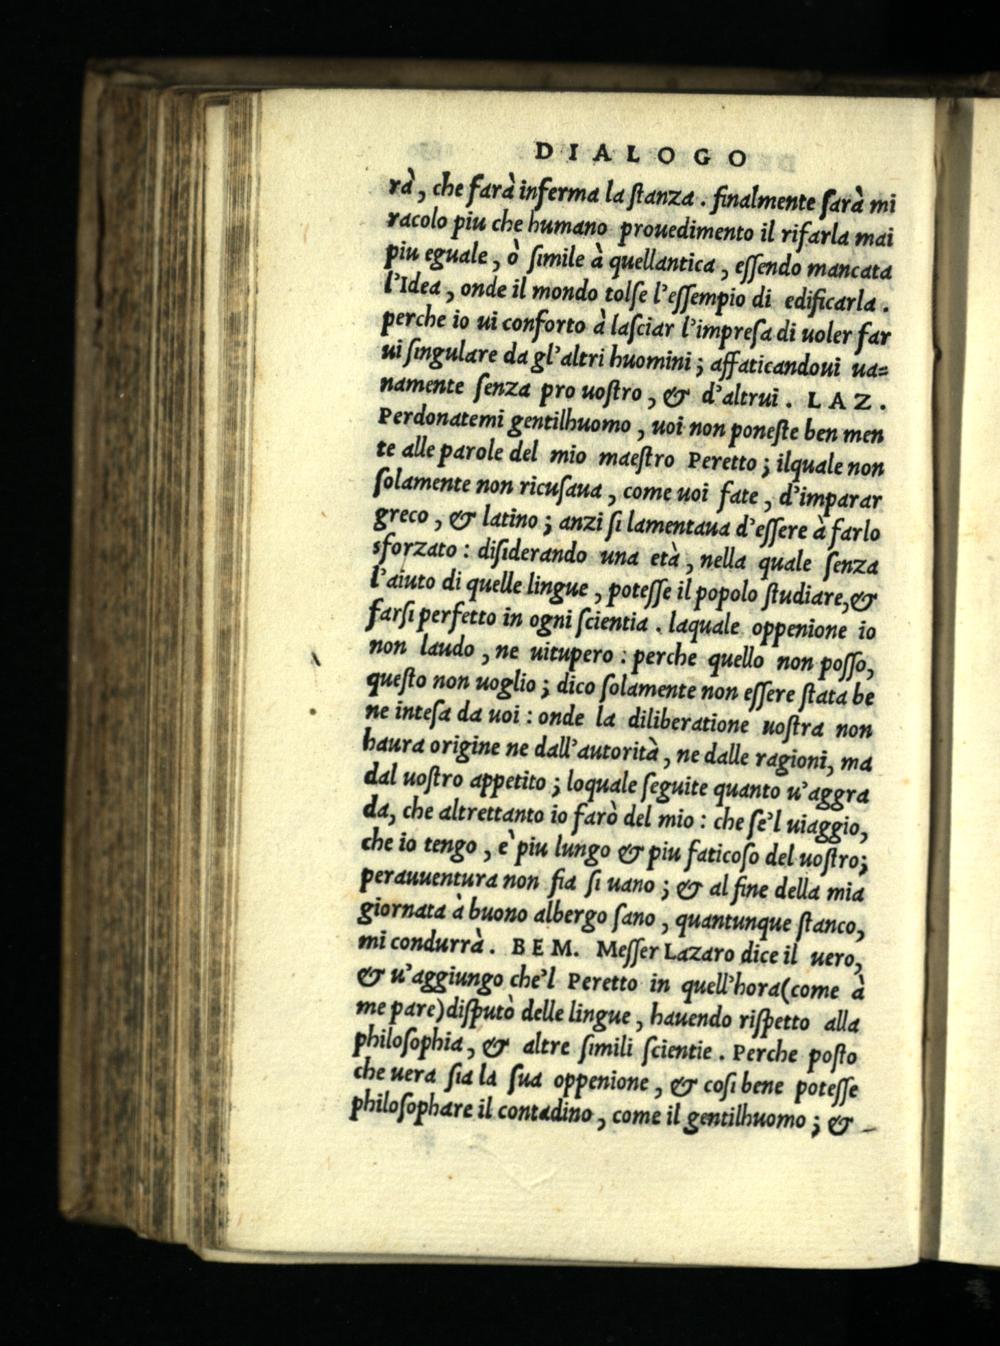 DIALOGO
rà, che farà inferma la ſtanza. finalmente ſarà mi
racolo piu che humano prouedimento il rifarla mai
piu eguale, ò ſimile à quellantica, eſſendo mancata
l'Idea, onde il mondo tolſe l'eſſempio di edificarla.
perche io ui conforto à laſciar l'impreſa di uoler far
ui ſingulare da gl'altri huomini; affaticandoui ua=
namente ſenza pro uoſtro, & d'altrui. LAZ.
Perdonatemi gentilhuomo, uoi non poneſte ben men
te alle parole del mio maeſtro Peretto; ilquale non
ſolamente non ricuſaua, come uoi fate, d'imparar
greco, & latino; anzi ſi lamentaua d'eſſere à farlo
sforzato: diſiderando una età, nella quale ſenza
l'aiuto di quelle lingue, poteſſe il popolo ſtudiare, &
farſi perfetto in ogni ſcientia. laquale oppenione io
non laudo, ne uitupero: perche quello non poſſo,
queſto non uoglio; dico ſolamente non eſſere ſtata be
ne inteſa da uoi: onde la diliberatione uoſtra non
haura origine ne dall'autorità, ne dalle ragioni, ma
dal uoſtro appetito; loquale ſeguite quanto u'aggra
da, che altrettanto io farò del mio: che ſe'l uiaggio,
che io tengo, è piu lungo & piu faticoſo del uoſtro;
perauuentura non fia ſi uano; & al fine della mia
giornata à buono albergo ſano, quantunque ſtanco,
mi condurrà. BEM. Meſſer Lazaro dice il uero,
& u'aggiungo che'l Peretto in quell'hora (come à
me pare) diſputò delle lingue, hauendo riſpetto alla
philoſophia, & altre ſimili ſcientie. Perche poſto
che uera ſia la ſua oppenione, & coſi bene poteſſe
philoſophare il contadino, come il gentilhuomo; &